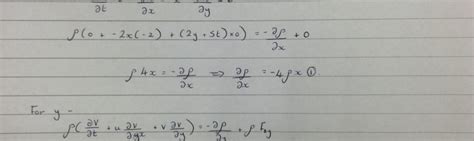 ∂t ∂x ∂y
ρ(0 + -2x(-2) + (2y + 5t)×0) = -∂ρ/∂x + 0
ρ4x = -∂ρ/∂x ⟹ ∂ρ/∂x = -4ρx ①.
For y -
ρ(∂v/∂t + u ∂v/∂x + v ∂v/∂y) = -∂ρ/∂y + ρ